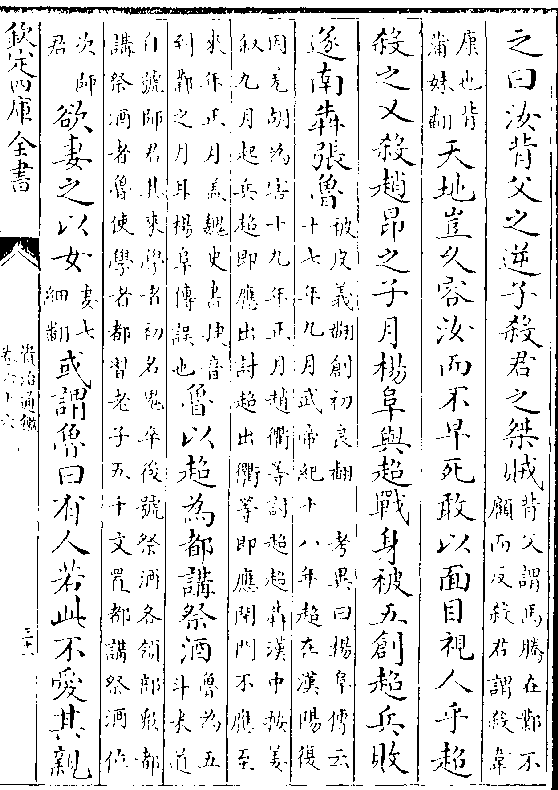 之曰汝背父之逆子殺君之桀賊背父謂馬騰在鄴不顧而反殺君謂殺韋
康也背蒲妹翻天地豈久容汝而不早死敢以面目視人乎超
殺之又殺趙昂之子月楊阜與超戰身被五創超兵敗
遂南奔張魯被皮義翻創初良翻 考異曰楊阜傳云十七年九月武帝紀十八年超在漢陽復
因羌胡為害十九年正月趙衢等討超超奔漢中按姜叙九月起兵超即應出討超出衢等即應閉門不應至
來年正月蓋魏史書捷音到鄴之月耳楊阜傳誤也魯以超為都講祭酒魯為五斗米道
自號師君其來學者初名鬼卒後號祭酒各領部衆都講祭酒者魯使學者都習老子五千文置都講祭酒位
次師君欲妻之以女妻七細翻或謂魯曰有人若此不愛其親
欽定四庫全書
資治通鑑
卷六十六